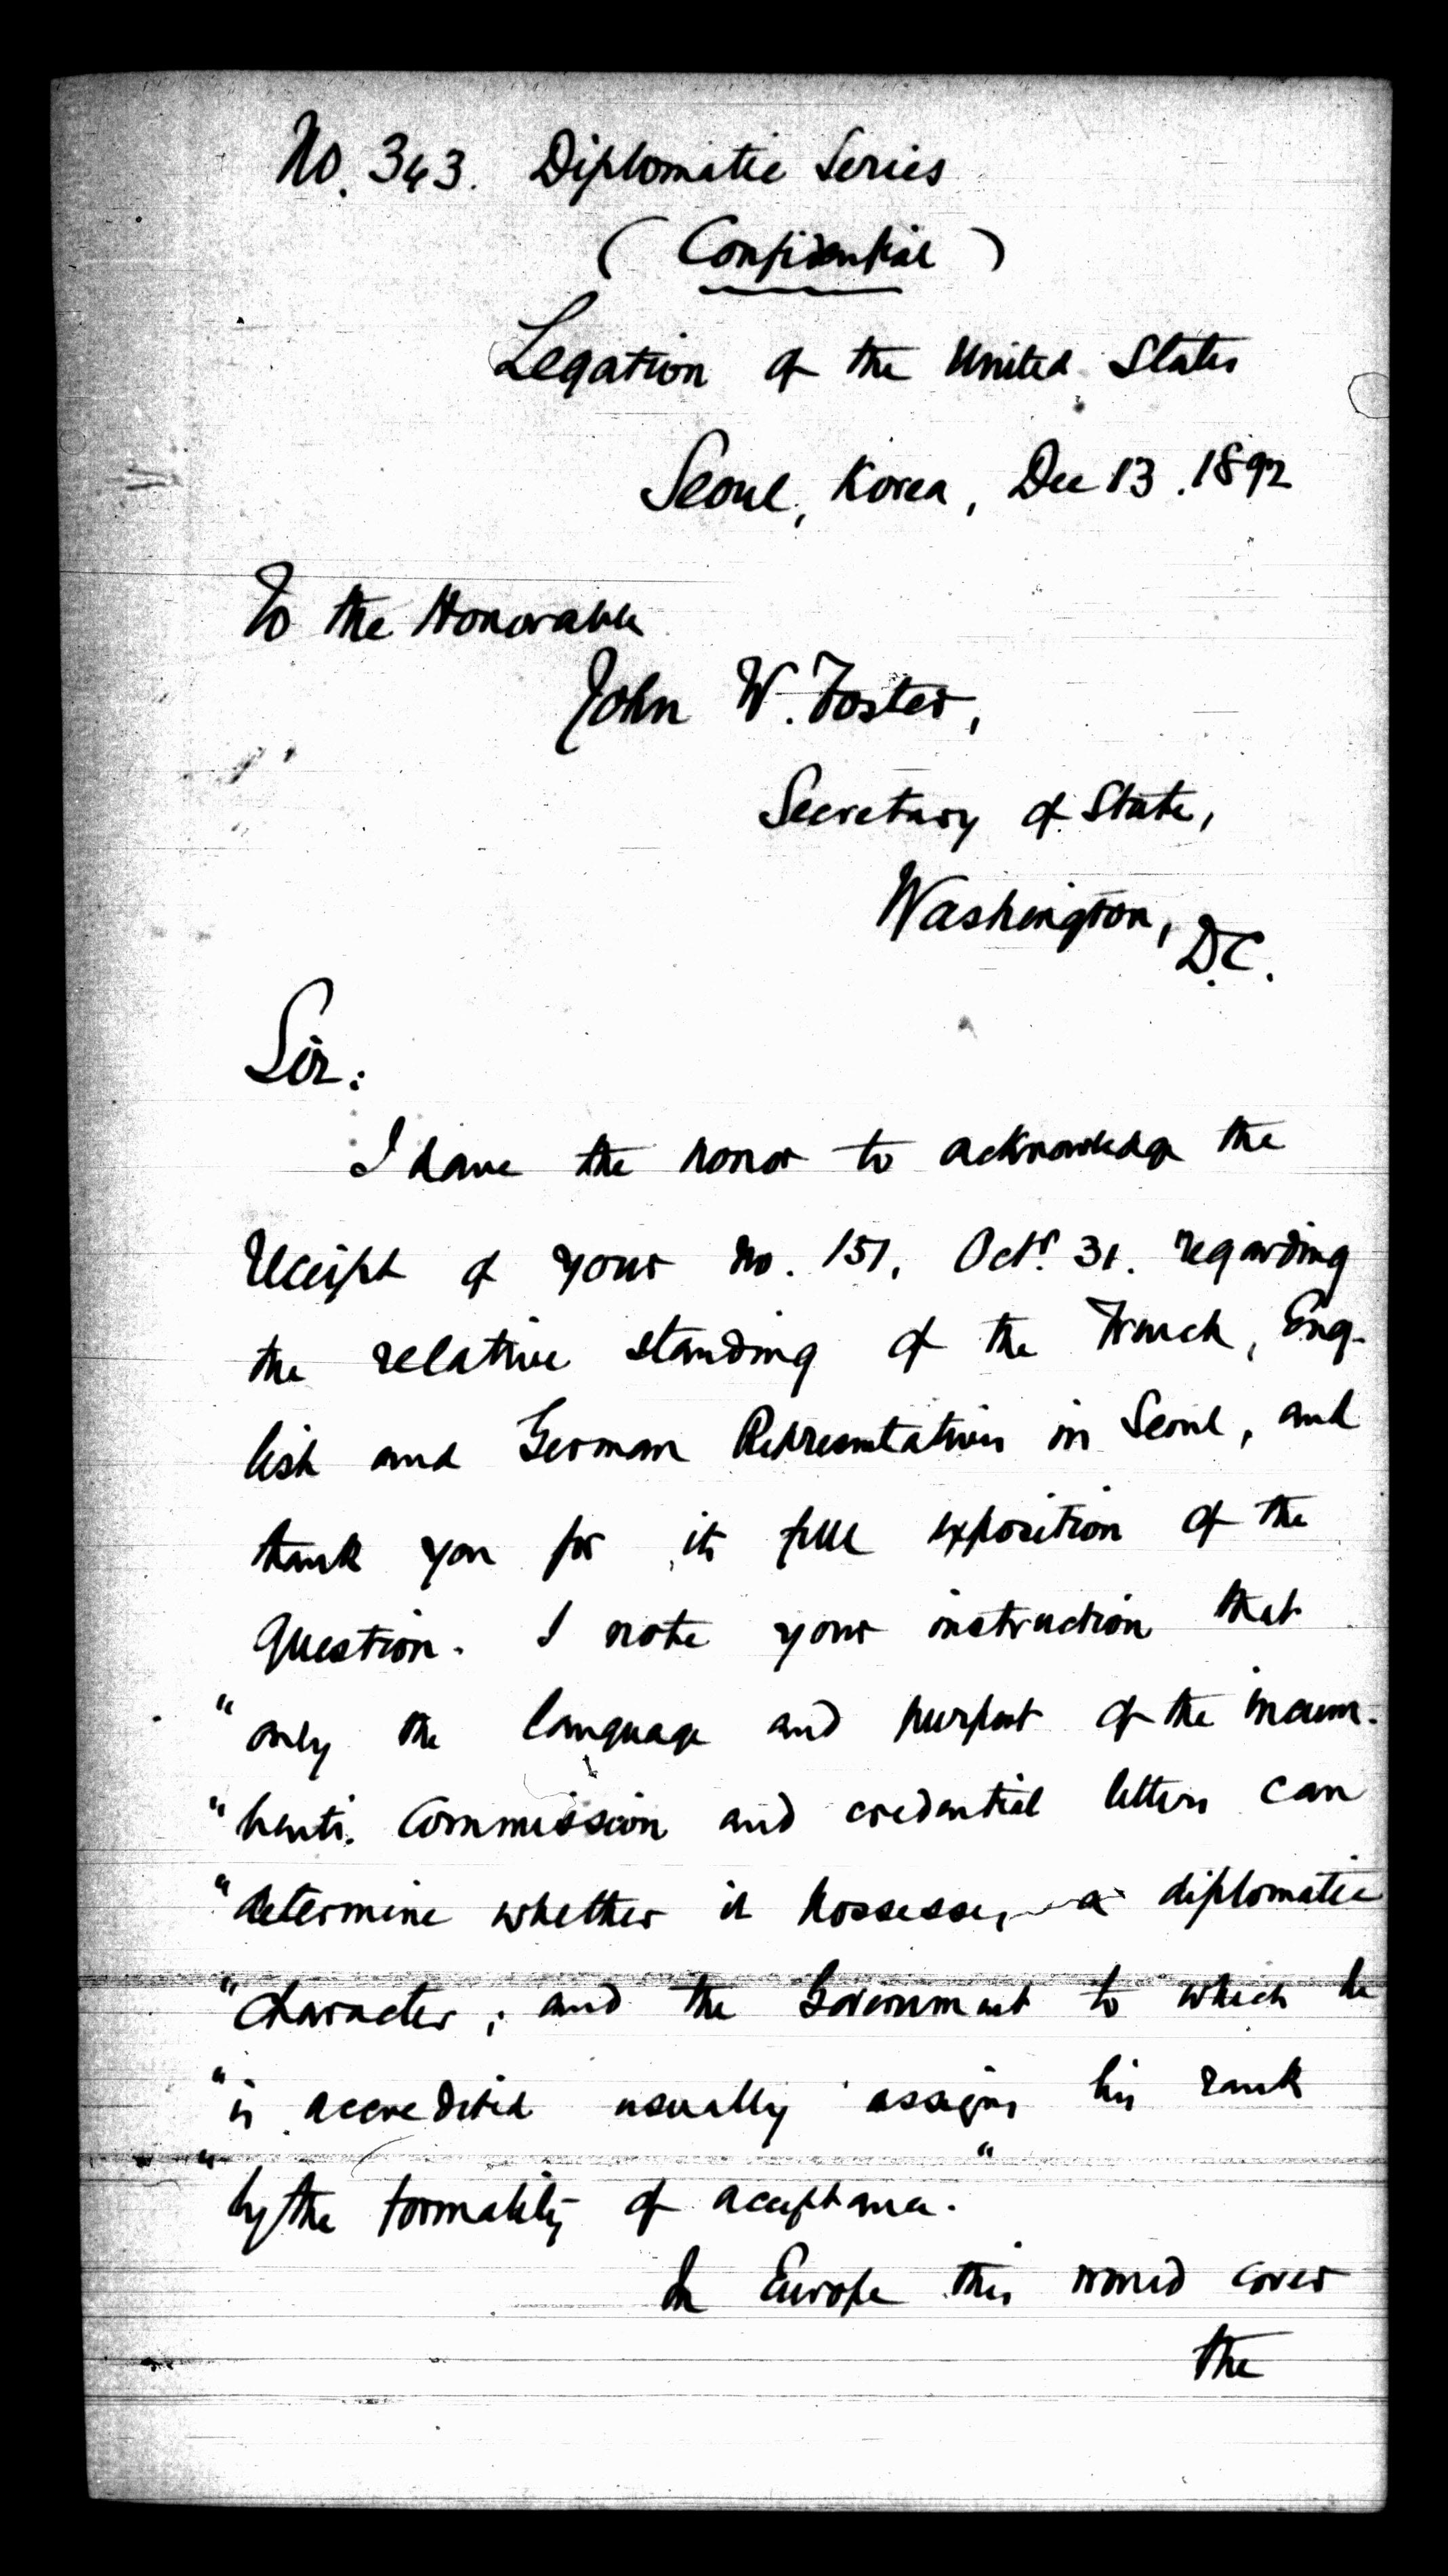 No. 343. Diplomatic Series
(Confidential)
Legation of the United States
Seoul, Korea, Dec 13. 1892
To the Honorable
John W. Foster,
Secretary of State,
Washington, D.C.
Sir:
I have the honor to acknowledge the
receipt of your No. 151, Octr. 31. regarding
the relative standing of the French, Eng-
lish and German Representatives in Seoul, and
thank you for its full exposition of the
question. I note your instruction that
"only the language and purport of the incum-
"bents. Commission and credential letters can
"determine whether it possesses a diplomatic
"character; and the Government to which he
"is accredited usually assigns his rank
"by the formality of acceptance."
In Europe this would cover
the